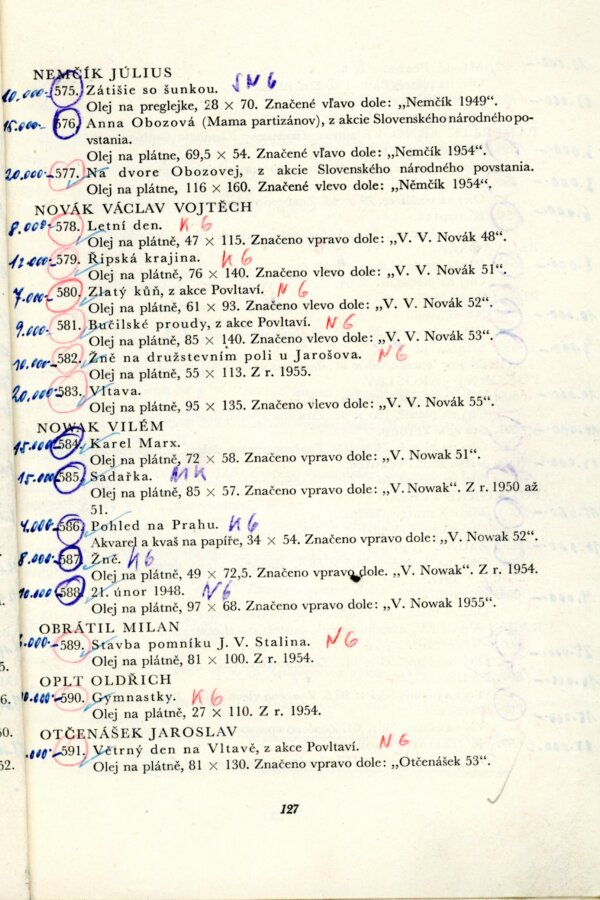 NEMČÍK JÚLIUS
10.000- 575. Zátišie so šunkou. SNG
Olej na preglejke, 28 × 70. Značené vľavo dole: „Nemčík 1949“.
15.000- 576. Anna Obozová (Mama partizánov), z akcie Slovenského národného po-
vstania.
Olej na plátne, 69,5 × 54. Značené vľavo dole: „Nemčík 1954“.
20.000- 577. Na dvore Obozovej, z akcie Slovenského národného povstania.
Olej na plátne, 116 × 160. Značené vlevo dole: „Němčík 1954“.
NOVÁK VÁCLAV VOJTĚCH
8.000- 578. Letní den. KG
Olej na plátně, 47 × 115. Značeno vpravo dole: „V. V. Novák 48“.
12.000- 579. Řípská krajina. KG
Olej na plátně, 76 × 140. Značeno vlevo dole: „V. V. Novák 51“.
7.000- 580. Zlatý kůň, z akce Povltaví. NG
Olej na plátně, 61 × 93. Značeno vlevo dole: „V. V. Novák 52“.
9.000- 581. Bučilské proudy, z akce Povltaví. NG
Olej na plátně, 85 × 140. Značeno vlevo dole: „V. V. Novák 53“.
10.000- 582. Žně na družstevním poli u Jarošova. NG
Olej na plátně, 55 × 113. Z r. 1955.
20.000- 583. Vltava.
Olej na plátně, 95 × 135. Značeno vlevo dole: „V. V. Novák 55“.
NOWAK VILÉM
15.000- 584. Karel Marx.
Olej na plátně, 72 × 58. Značeno vpravo dole: „V. Nowak 51“.
15.000- 585. Sadařka. MK
Olej na plátně, 85 × 57. Značeno vpravo dole: „V. Nowak“. Z r. 1950 až
51.
4.000- 586. Pohled na Prahu. KG
Akvarel a kvaš na papíře, 34 × 54. Značeno vpravo dole: „V. Nowak 52“.
8.000- 587. Žně. KG
Olej na plátně, 49 × 72,5. Značeno vpravo dole. „V. Nowak“. Z r. 1954.
10.000- 588. 21. únor 1948. NG
Olej na plátně, 97 × 68. Značeno vpravo dole: „V. Nowak 1955“.
OBRÁTIL MILAN
.000- 589. Stavba pomníku J. V. Stalina. NG
Olej na plátně, 81 × 100. Z r. 1954.
OPLT OLDŘICH
10.000- 590. Gymnastky. KG
Olej na plátně, 27 × 110. Z r. 1954.
OTČENÁŠEK JAROSLAV
.000- 591. Větrný den na Vltavě, z akce Povltaví. NG
Olej na plátně, 81 × 130. Značeno vpravo dole: „Otčenášek 53“.
127